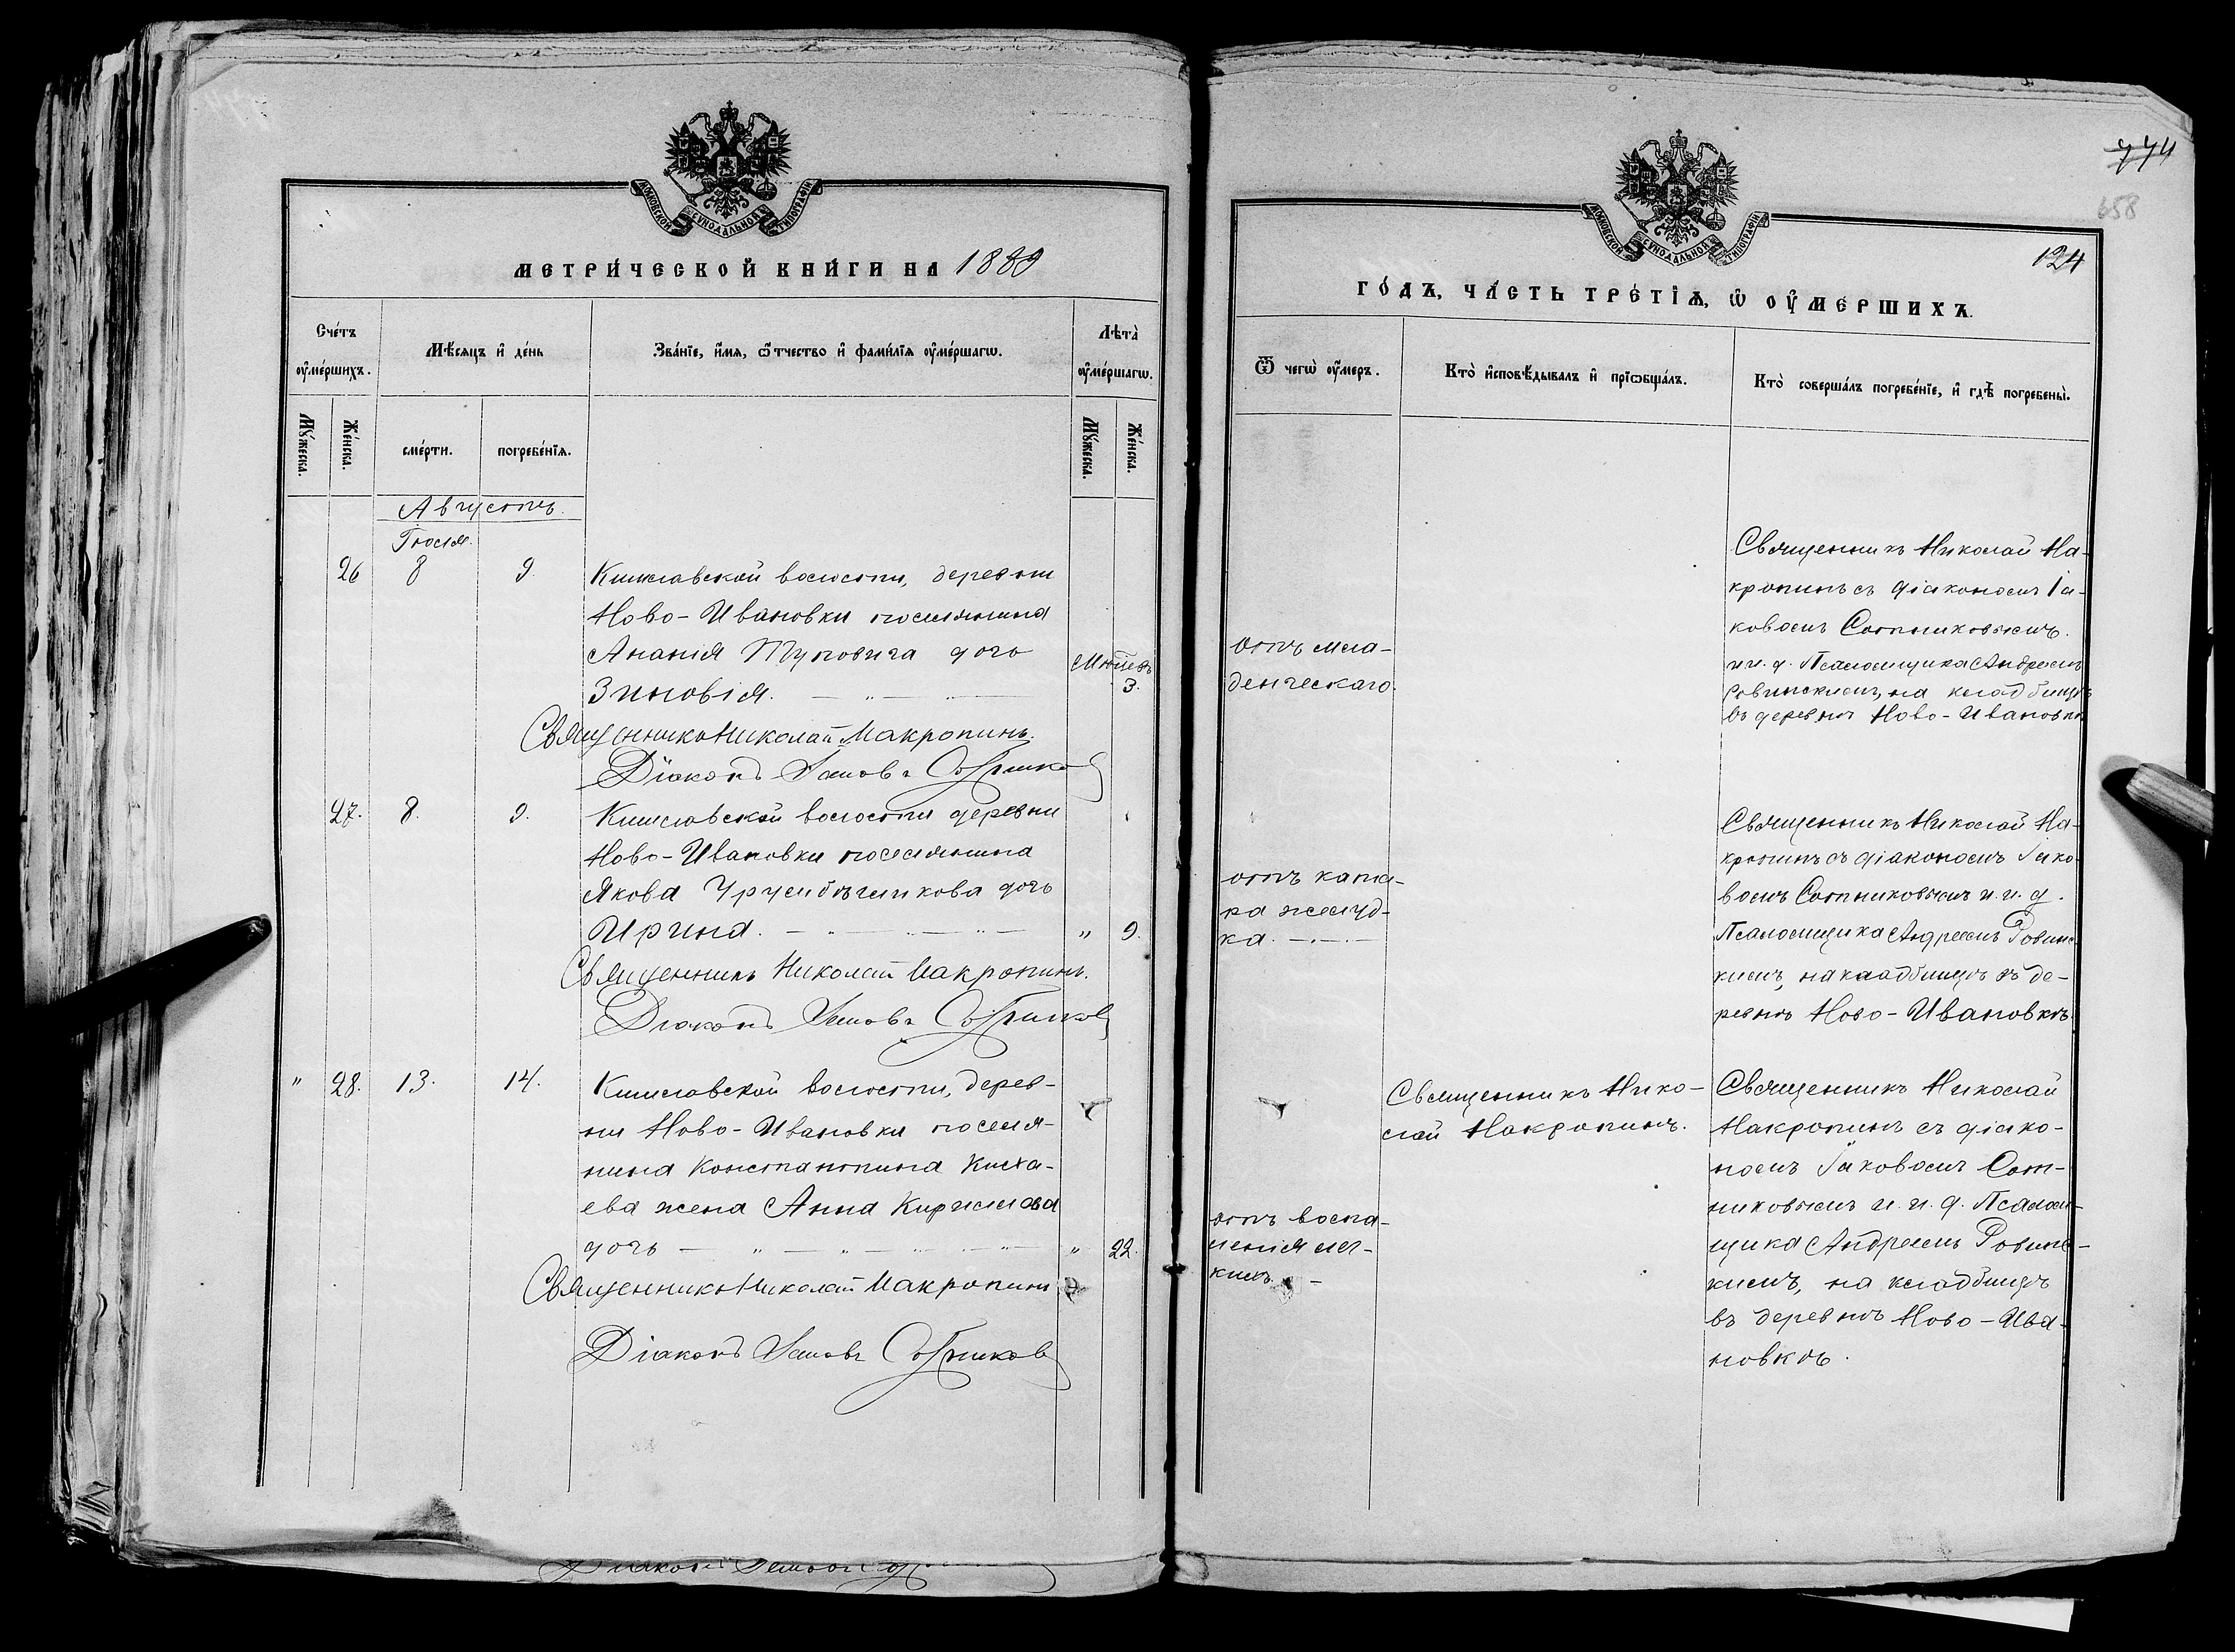 МОСКОВСКОЙ СѴНОДАЛЬНОЙ ТИПОГРАФІИ
МЕТРИ́ЧЕСКОЙ КНИ́ГИ НА 1889
Сче́тъ оу҆ме́ршихъ.
Мѣ́сяцъ и҆ де́нь
Зва́ніе, и҆́мя, ѻ҆́тчество и҆ фами́лія оу҆ме́ршагѡ.
Лѣ́та оу҆ме́ршагѡ.
Му́жеска.
Же́нска.
сме́рти.
погребе́нія.
Му́жеска.
Же́нска.
Августъ.
26 8 9. Кишлавской волости, деревни
Ново-Ивановки поселянина
Ананія дочь
Зиновія. Мѣсяцъ 3.
Священникъ Николай Макропинъ.
Діаконъ Іаковъ Сотников
27. 8. 9. Кишлавской волости деревни
Ново-Ивановки поселянина
Якова дочь
Ирина. — " — " — " 9.
Священникъ Николай Макропинъ.
Діаконъ Іаковъ Сотников
" 28. 13. 14. Кишлавской волости, дерев-
ни Ново-Ивановки поселя-
нина Константина Кисха-
ева жена Анна Кирилова
дочь — " — " — " 22.
Священникъ Николай Макропинъ
Діаконъ Іаковъ Сотников
774
658
124
МОСКОВСКОЙ СѴНОДАЛЬНОЙ ТИПОГРАФІИ
ГО́ДЪ, ЧА́СТЬ ТРЕ́ТІѦ, Ѡ҆ ОУ҆МЕ́РШИХЪ.
Ѿ чегѡ̀ оу҆́меръ.
Кто̀ и҆сповѣ́дывалъ и҆ прїѡбща́лъ.
Кто̀ соверша́лъ погребе́ніе, и҆ гдѣ̀ погребены̀.
отъ мла-
денческаго.
Священникъ Николай Ма-
кропинъ съ діакономъ Іа-
ковомъ Сотниковымъ.
и и. д. Псаломщика Андреемъ
Ровинскимъ, на кладбищѣ
въ деревнѣ Ново-Ивановкѣ
отъ ката-
ра желуд-
ка. —.—.—
Священникъ Николай Ма-
кропинъ съ діакономъ Іако-
вомъ Сотниковымъ и. и. д.
Псаломщика Андреемъ Ровинс-
кимъ, на кладбищѣ въ де-
ревнѣ Ново-Ивановкѣ.
отъ воспа-
ленія лег-
кихъ. —
Священникъ Нико-
лай Макропинъ.
Священникъ Николай
Макропинъ съ діако-
номъ Іаковомъ Сот-
никовымъ и. и. д. Псалом-
щика Андреемъ Ровинс-
кимъ, на кладбищѣ
въ деревнѣ Ново-Ива-
новкѣ.